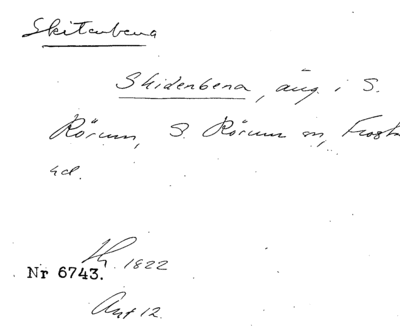 Skitenbena
Skidenbena, äng i S.
Rörum, S. Rörum sn, Frosta
hd.
1822
Nr 6743.
Ant 12.